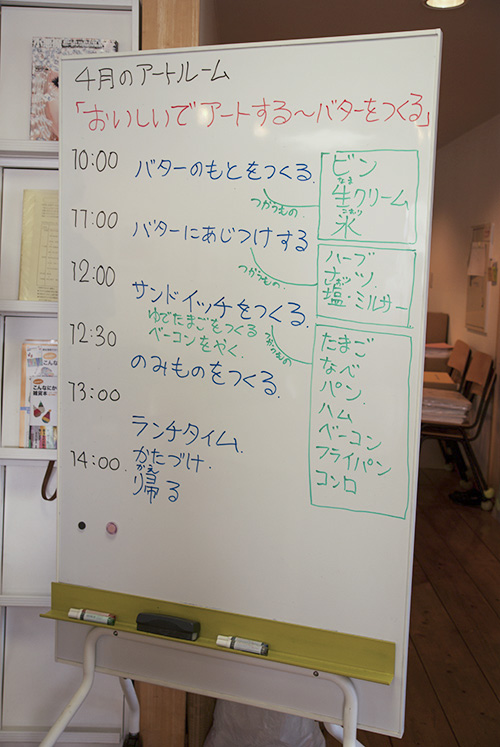 4月のアートルーム
「おいしいでアートする〜バターをつくる」
10:00
バターのもとをつくる.
つかうもの.
ビン
なま
生クリーム
こおり
氷
11:00
バターにあじつけする
つかうもの.
ハーブ
ナッツ
しお
塩・ミルサー
12:00
サンドイッチをつくる.
ゆでたまごをつくる
ベーコンをやく.
つかうもの
たまご
なべ
パン.
ハム
ベーコン
フライパン
コンロ
12:30
のみものをつくる.
13:00
ランチタイム.
14:00.
かたづけ.
かえ
帰る